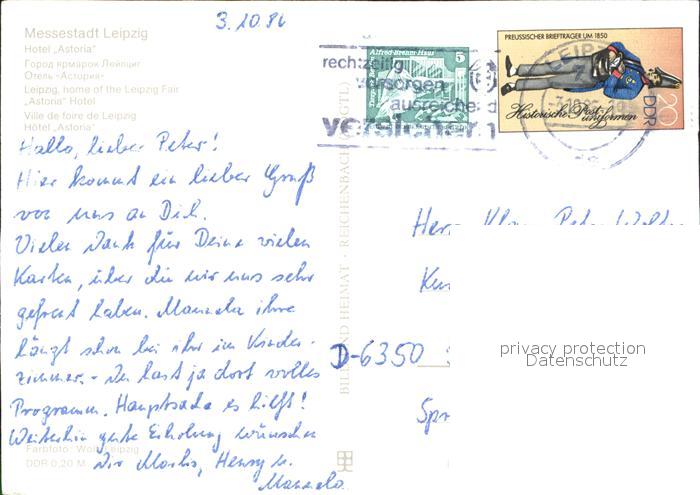 3.10.86
Messestadt Leipzig
Hotel „Astoria"
Город ярмарок Лейпциг
Отель «Астория»
Leipzig, home of the Leipzig Fair
„Astoria" Hotel
Ville de foire de Leipzig
Hôtel „Astoria"
Hallo, lieber Peter!
Hier kommt ein lieber Gruß
von uns an Dich.
Vielen Dank für Deine vielen
Karten, über die wir uns sehr
gefreut haben. Manuela ihre
hängt schon bei ihr im Kinder-
zimmer. - Du hast ja dort volles
Programm. Hauptsache es hilft!
Weiterhin gute Erholung wünschen
Dir
Manuela
Farbfoto: Leipzig
DDR 0,20 M
BILD UND HEIMAT · REICHENBACH (VOGTL)
Alfred-Brehm-Haus
5
rechtzeitig
vorsorgen
ausreichend
versichern
PREUSSISCHER BRIEFTRÄGER UM 1850
Historische Postuniformen
DDR
20
LEIPZIG
7
Herr Peter
D-6350
privacy protection
Datenschutz